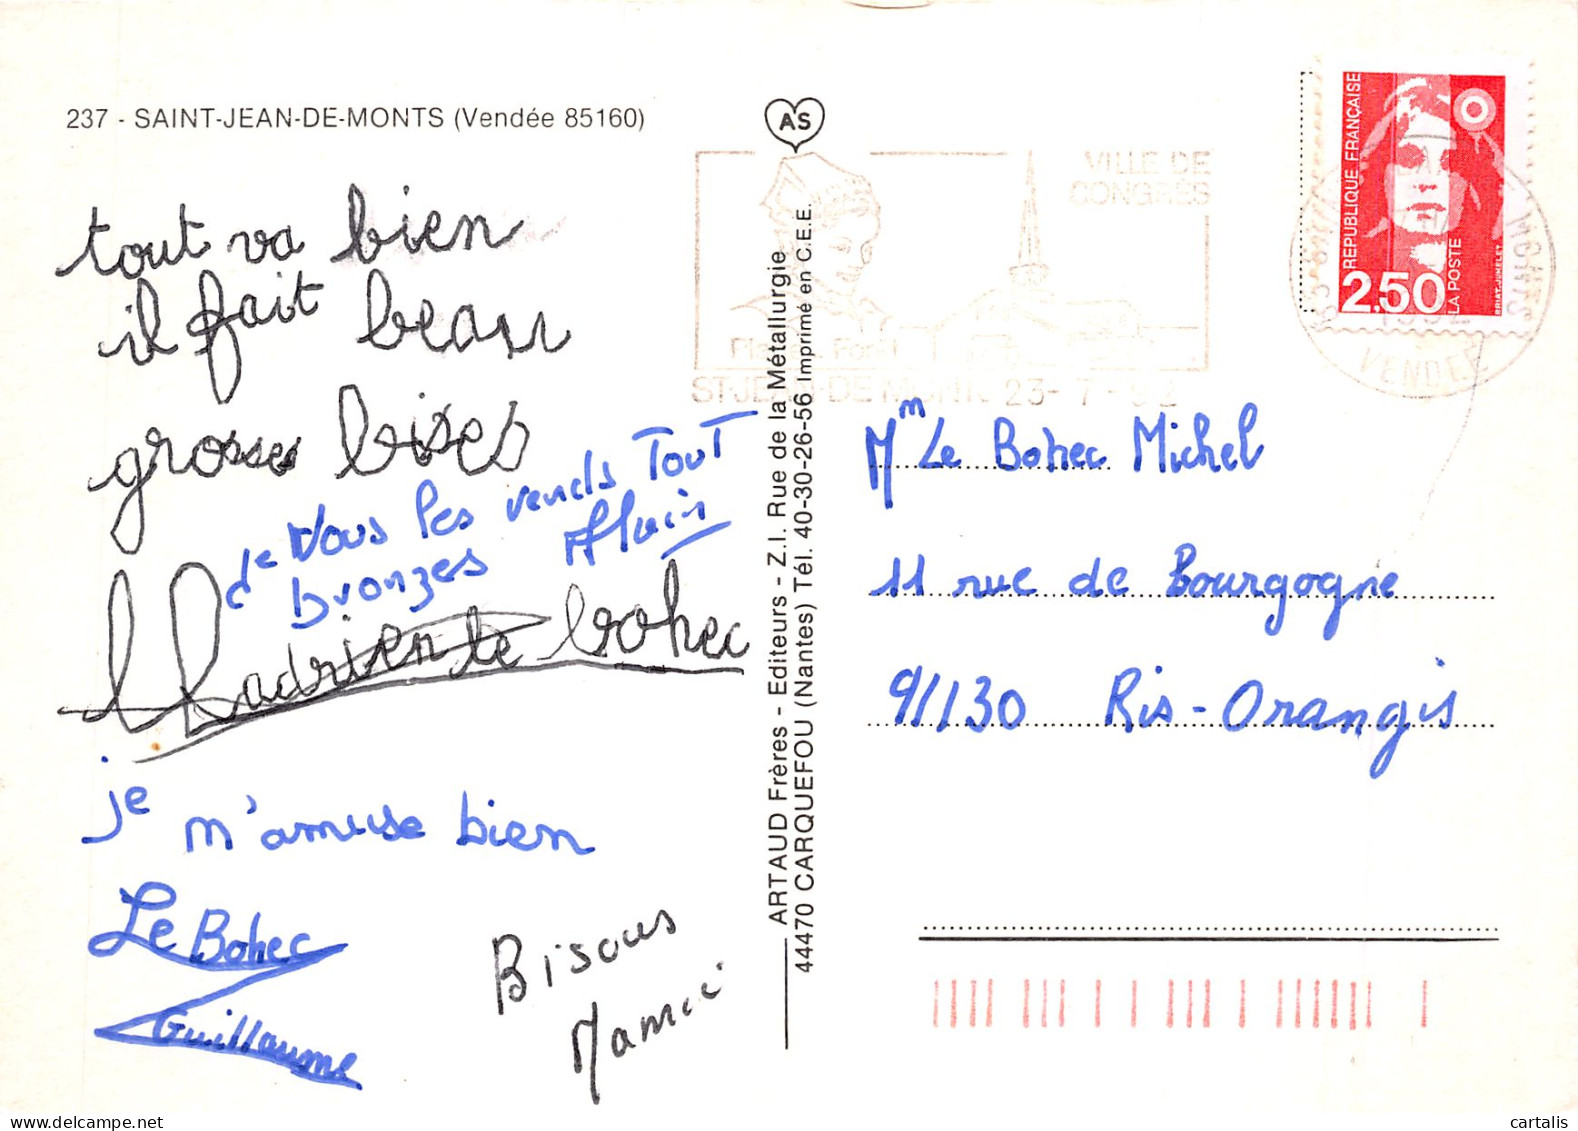 237 - SAINT-JEAN-DE-MONTS (Vendée 85160)
tout va bien
il fait beau
grosses bises
Je Vous les rends Tout
bronzes Alain
hadrien le bohec
je
m'amuse bien
Le Bohec
Guillaume
Bisous
Mamie
AS
ARTAUD Frères - Editeurs - Z.I. Rue de la Métallurgie
44470 CARQUEFOU (Nantes) Tél. 40-30-26-56 Imprimé en C.E.E.
VILLE DE
CONGRÈS
ST-JEAN-DE MONTS 23-7-92
REPUBLIQUE FRANÇAISE
2,50
LA POSTE
BRIAT-JUMELET
MONTS
1992
VENDEE
Mm Le Bohec Michel
11 rue de Bourgogne
91130 Ris-Orangis
cartalis